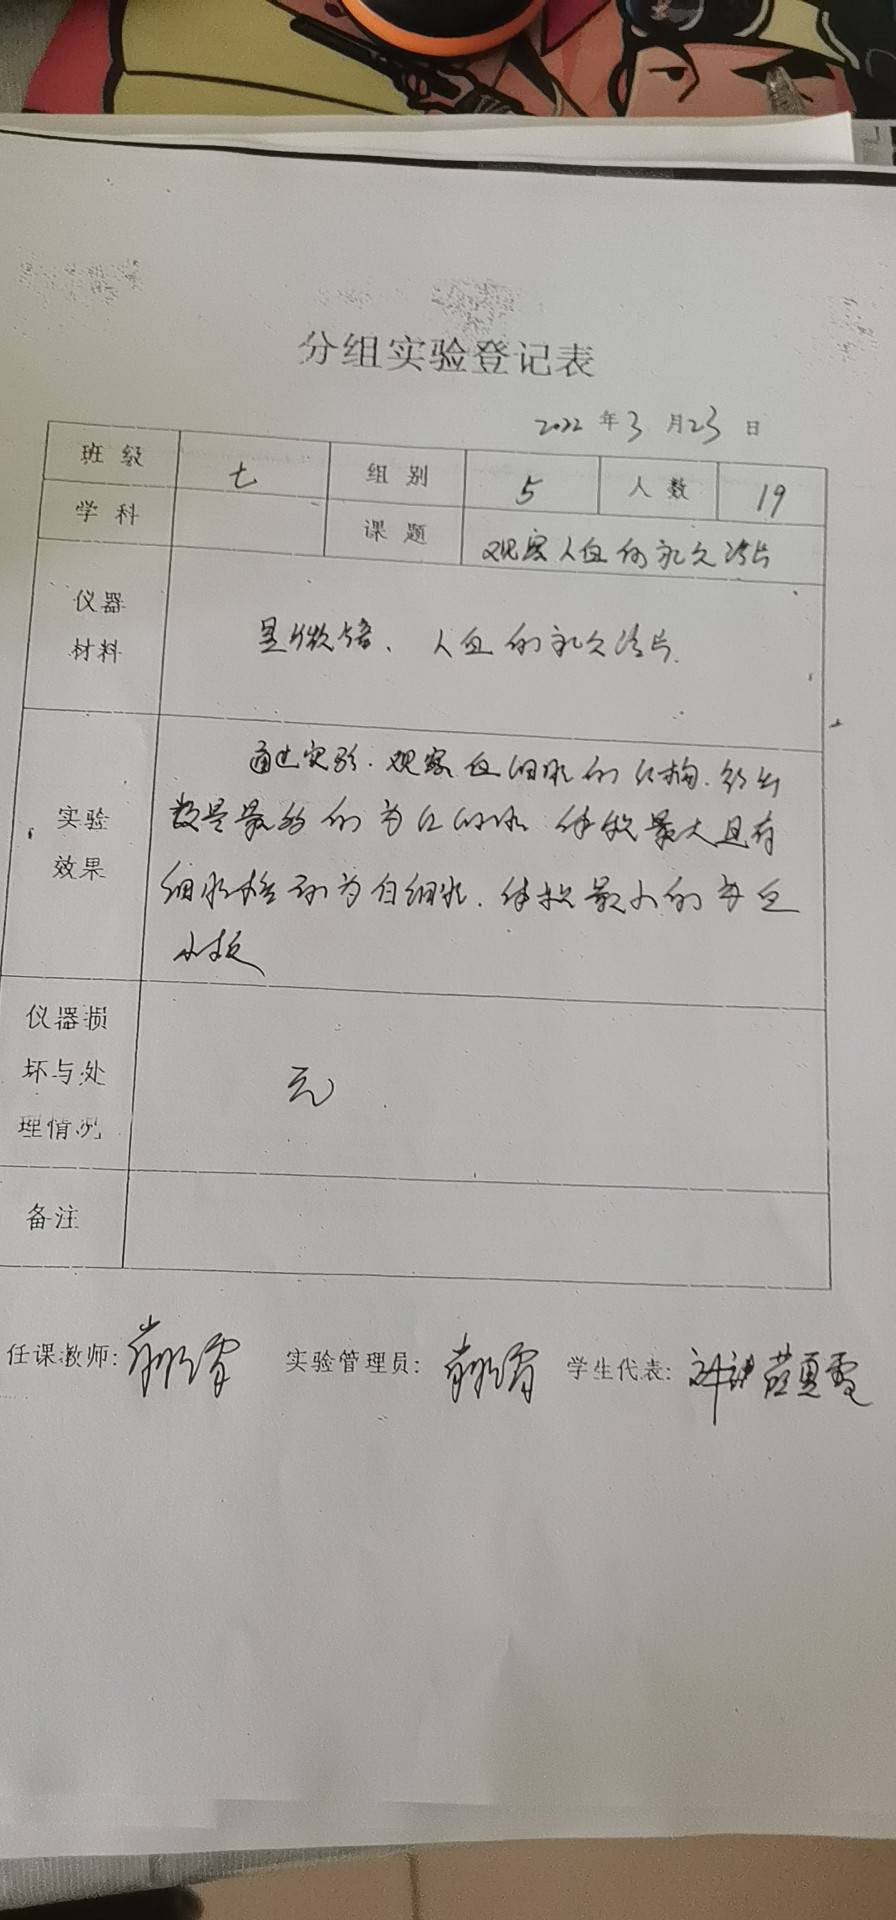 分组实验登记表
2022年3月23日
班级 七 组别 5 人数 19
学科 课题 观察人血的永久涂片
仪器
材料
显微镜、人血的永久涂片.
实验
效果
通过实验.观察血细胞的结构.
数量最多的为红细胞 体积最大且有
细胞核的为白细胞.体积最小的为血
小板
仪器损
坏与处
理情况
无
备注
任课教师: 实验管理员: 学生代表: